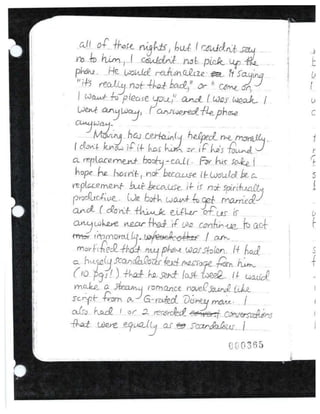 all of those nights, but I couldn't say
no to him, I couldn't not pick up the
phone. He would rationalize it saying
"it's really not that bad," or "come on,
I want to please you," and I was weak. I
went anyway, I answered the phone
anyway.
Moving has certainly helped me morally.
I don't know if it has him or if he's found
a replacement booty-call. For his sake I
hope he hasn't, not because it would be a
replacement but because it is not spiritually
productive. We both want to get married
and I don't think either of us is
anywhere near that if we continue to act
immorally. I am
mortified that my phone was stolen. It had
a hugely scandalous text message from him
(10 pgs!) that he sent last week. It would
make a steamy romance novel sound like
script from a G-rated Disney movie. I
also had 1 or 2 recorded conversations
that were equally as scandalous. I
000365